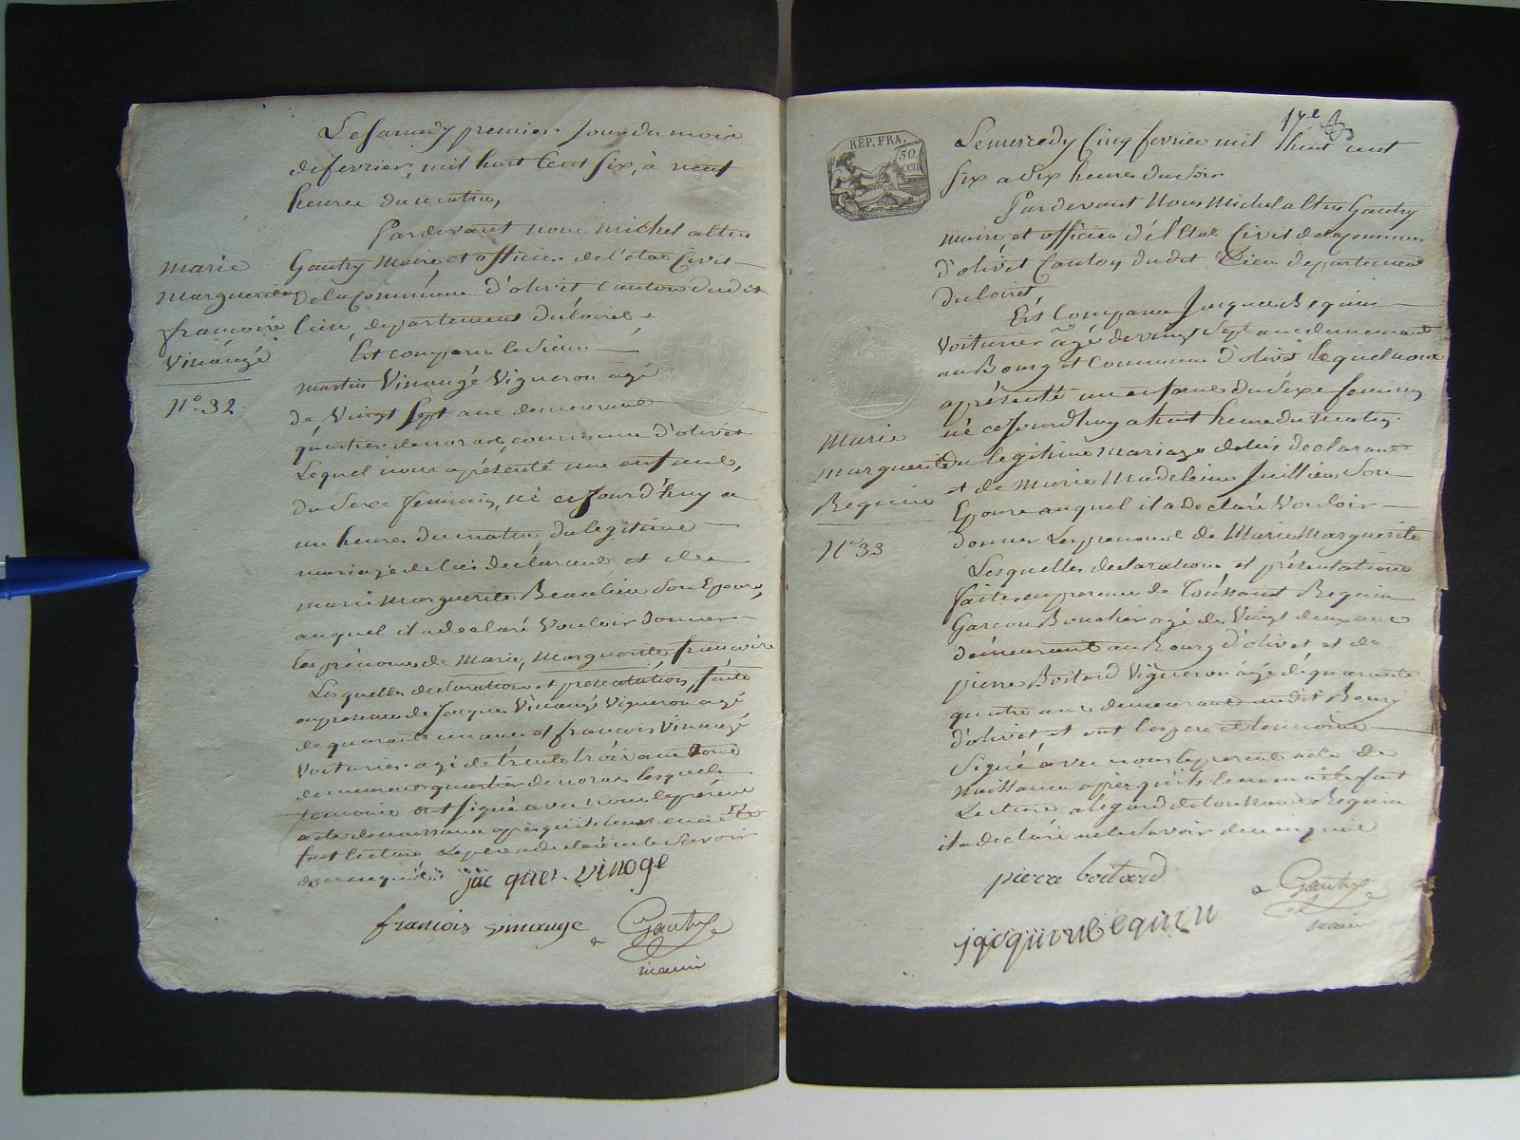 Le Samedy premier Jour du mois
de fevrier, mil huit Cent Six, à neuf
heures du matin,
Pardevant nous michel altin
Gautry Maire et officier de l'état Civil
de la Commune d'olivet canton dudit
lieu, departement du loiret
Est comparu le Sieur
martin Vinaugé Vigneron agé
de Vingt Sept ans demeurant
quartier de commune d'olivet
Lequel nous a présenté une enfant,
du Sexe feminin, né cejourd'huy a
un heure du matin du legitime
mariage de lui déclarant et de
marie Marguerite Beaulieu Son Epouse,
auquel il a declaré Vouloir donner
les prénoms de Marie, Marguerite françoise
Les quelles declaration et présentation faite
en presence de Jacques Vinaugé Vigneron agé
de quarante un ans et françois Vinaugé
Voiturier agé de trente trois ans
demeurant quartier de lesquels
temoins ont signé avec nous le présent
acte de naissance après qu'il leur en a été
fait lecture Le père a declaré ne le Savoir
de ce enquis
jac ques vinoge
francois vinauge
Gautry
maire
marie
Marguerite
francoise
Vinaugé
N°. 32
17e
RÉP. FRA.
50
CEN
Le mercredy Cinq fevrier mil huit cent
Six a dix heures du Soir
Pardevant Nous Michel altin Gautry
maire et officier de l'Etat Civil de la Commune
d'olivet Canton dudit Lieu departement
du loiret
Est Comparu Jacques Bequin
Voiturier âgé de vingt Sept ans demeurant
au Bourg et Commune d'olivet Lequel nous
a présenté un enfant du Sexe feminin
né cejourd'huy a huit heure du matin
du legitime mariage de lui declarant
et de Marie Madeleine Juillien Son
Epouse auquel il a declaré Vouloir
donner Les prenoms de Marie Marguerite
Lesquelles declaration et présentation
faite en presence de Toussaint Bequin
Garcon Boucher agé de Vingt deux ans
demeurant au Bourg d'olivet et de
pierre Boitard Vigneron âgé de quarante
quatre ans demeurant audit Bourg
d'olivet et ont le pere et temoins
Signé avec nous le present acte de
naissance après qu'il leur en a été fait
Lecture, a l'égard de toussaint Bequin
il a declaré ne le Savoir de ce enquis
pierre boitard
Gautry
maire
jacques bequin
Marie
marguerite
Bequin
N°. 33